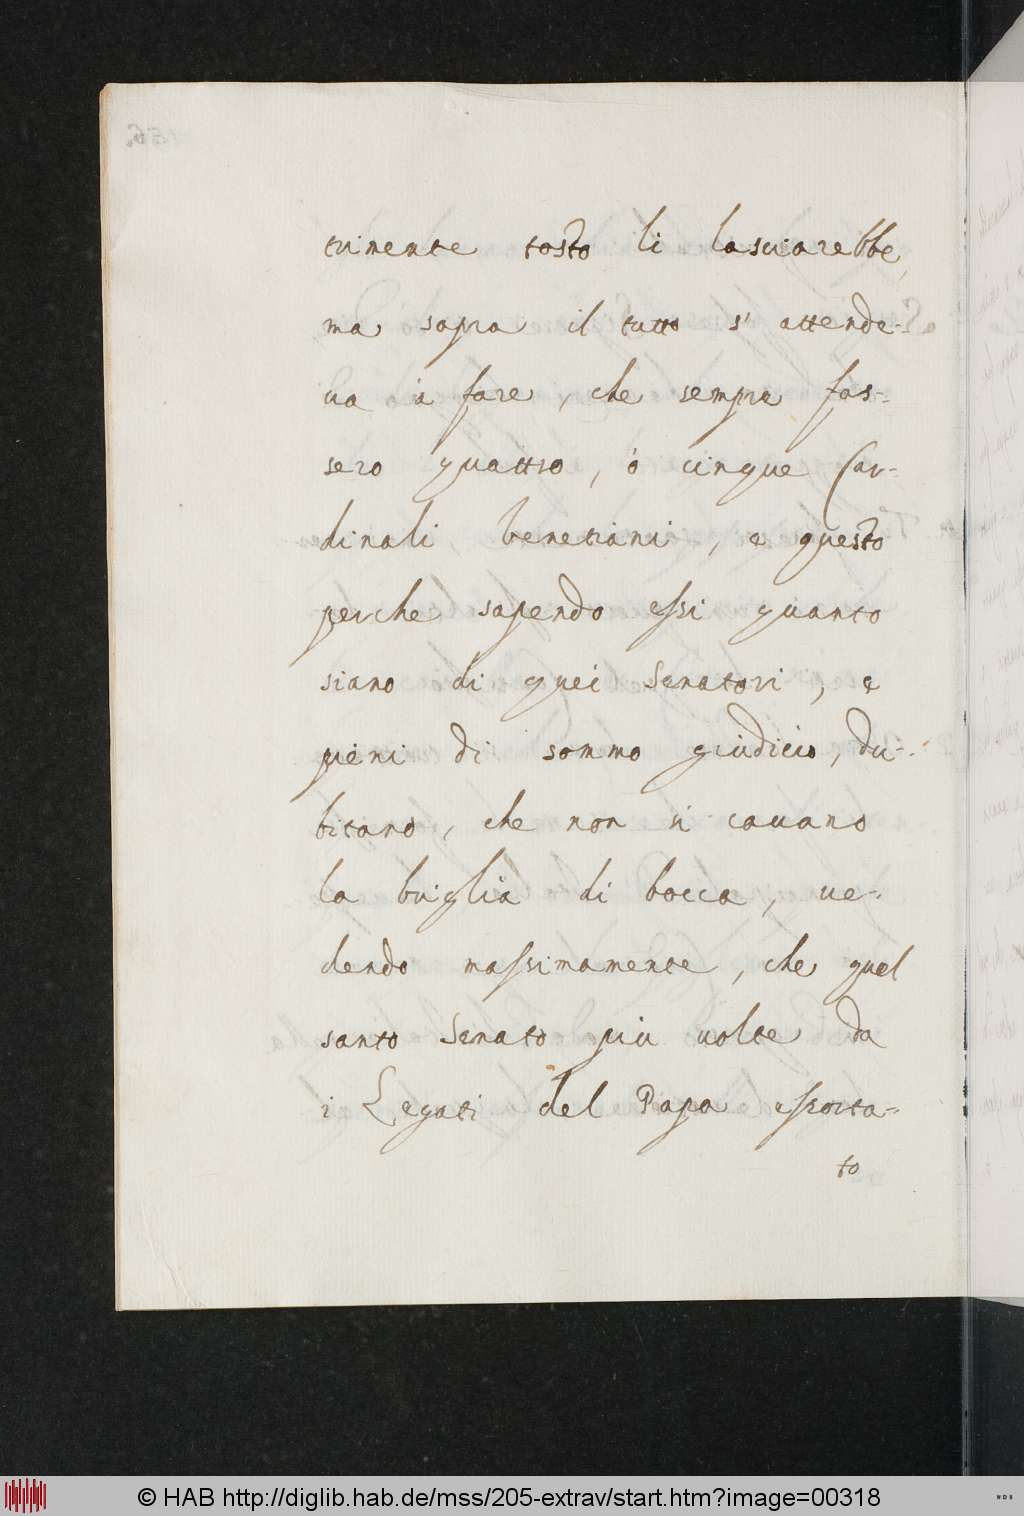 trimente tosto li lasciarebbe,
ma sopra il tutto s' attende-
ua à fare, che sempre fos-
sero quattro, ò cinque Car-
dinali Venetiani, e questo
perche sapendo essi quanto
siano di quei Senatori, e
pieni di sommo giudicio, du-
bitano, che non si cauano
la briglia di bocca, ue-
dendo massimamente, che quel
santo Senato più uolte da
i Legati del Papa essorta-
to
© HAB http://diglib.hab.de/mss/205-extrav/start.htm?image=00318